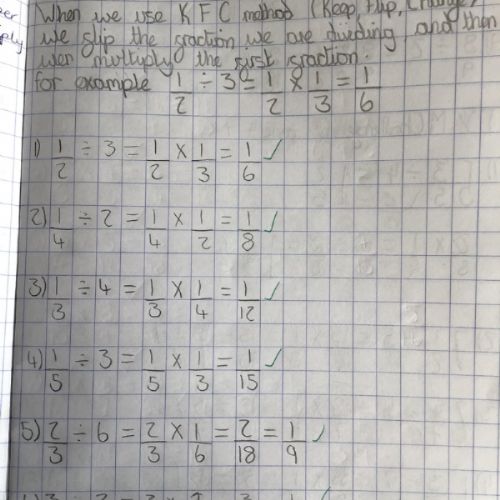 When we use KFC method (Keep Flip, Change)
we flip the fraction we are dividing and then
wer multiply the first fraction.
for example 1/2 ÷ 3 = 1/2 × 1/3 = 1/6
1) 1/2 ÷ 3 = 1/2 × 1/3 = 1/6 ✓
2) 1/4 ÷ 2 = 1/4 × 1/2 = 1/8 ✓
3) 1/3 ÷ 4 = 1/3 × 1/4 = 1/12 ✓
4) 1/5 ÷ 3 = 1/5 × 1/3 = 1/15 ✓
5) 2/3 ÷ 6 = 2/3 × 1/6 = 2/18 = 1/9 ✓